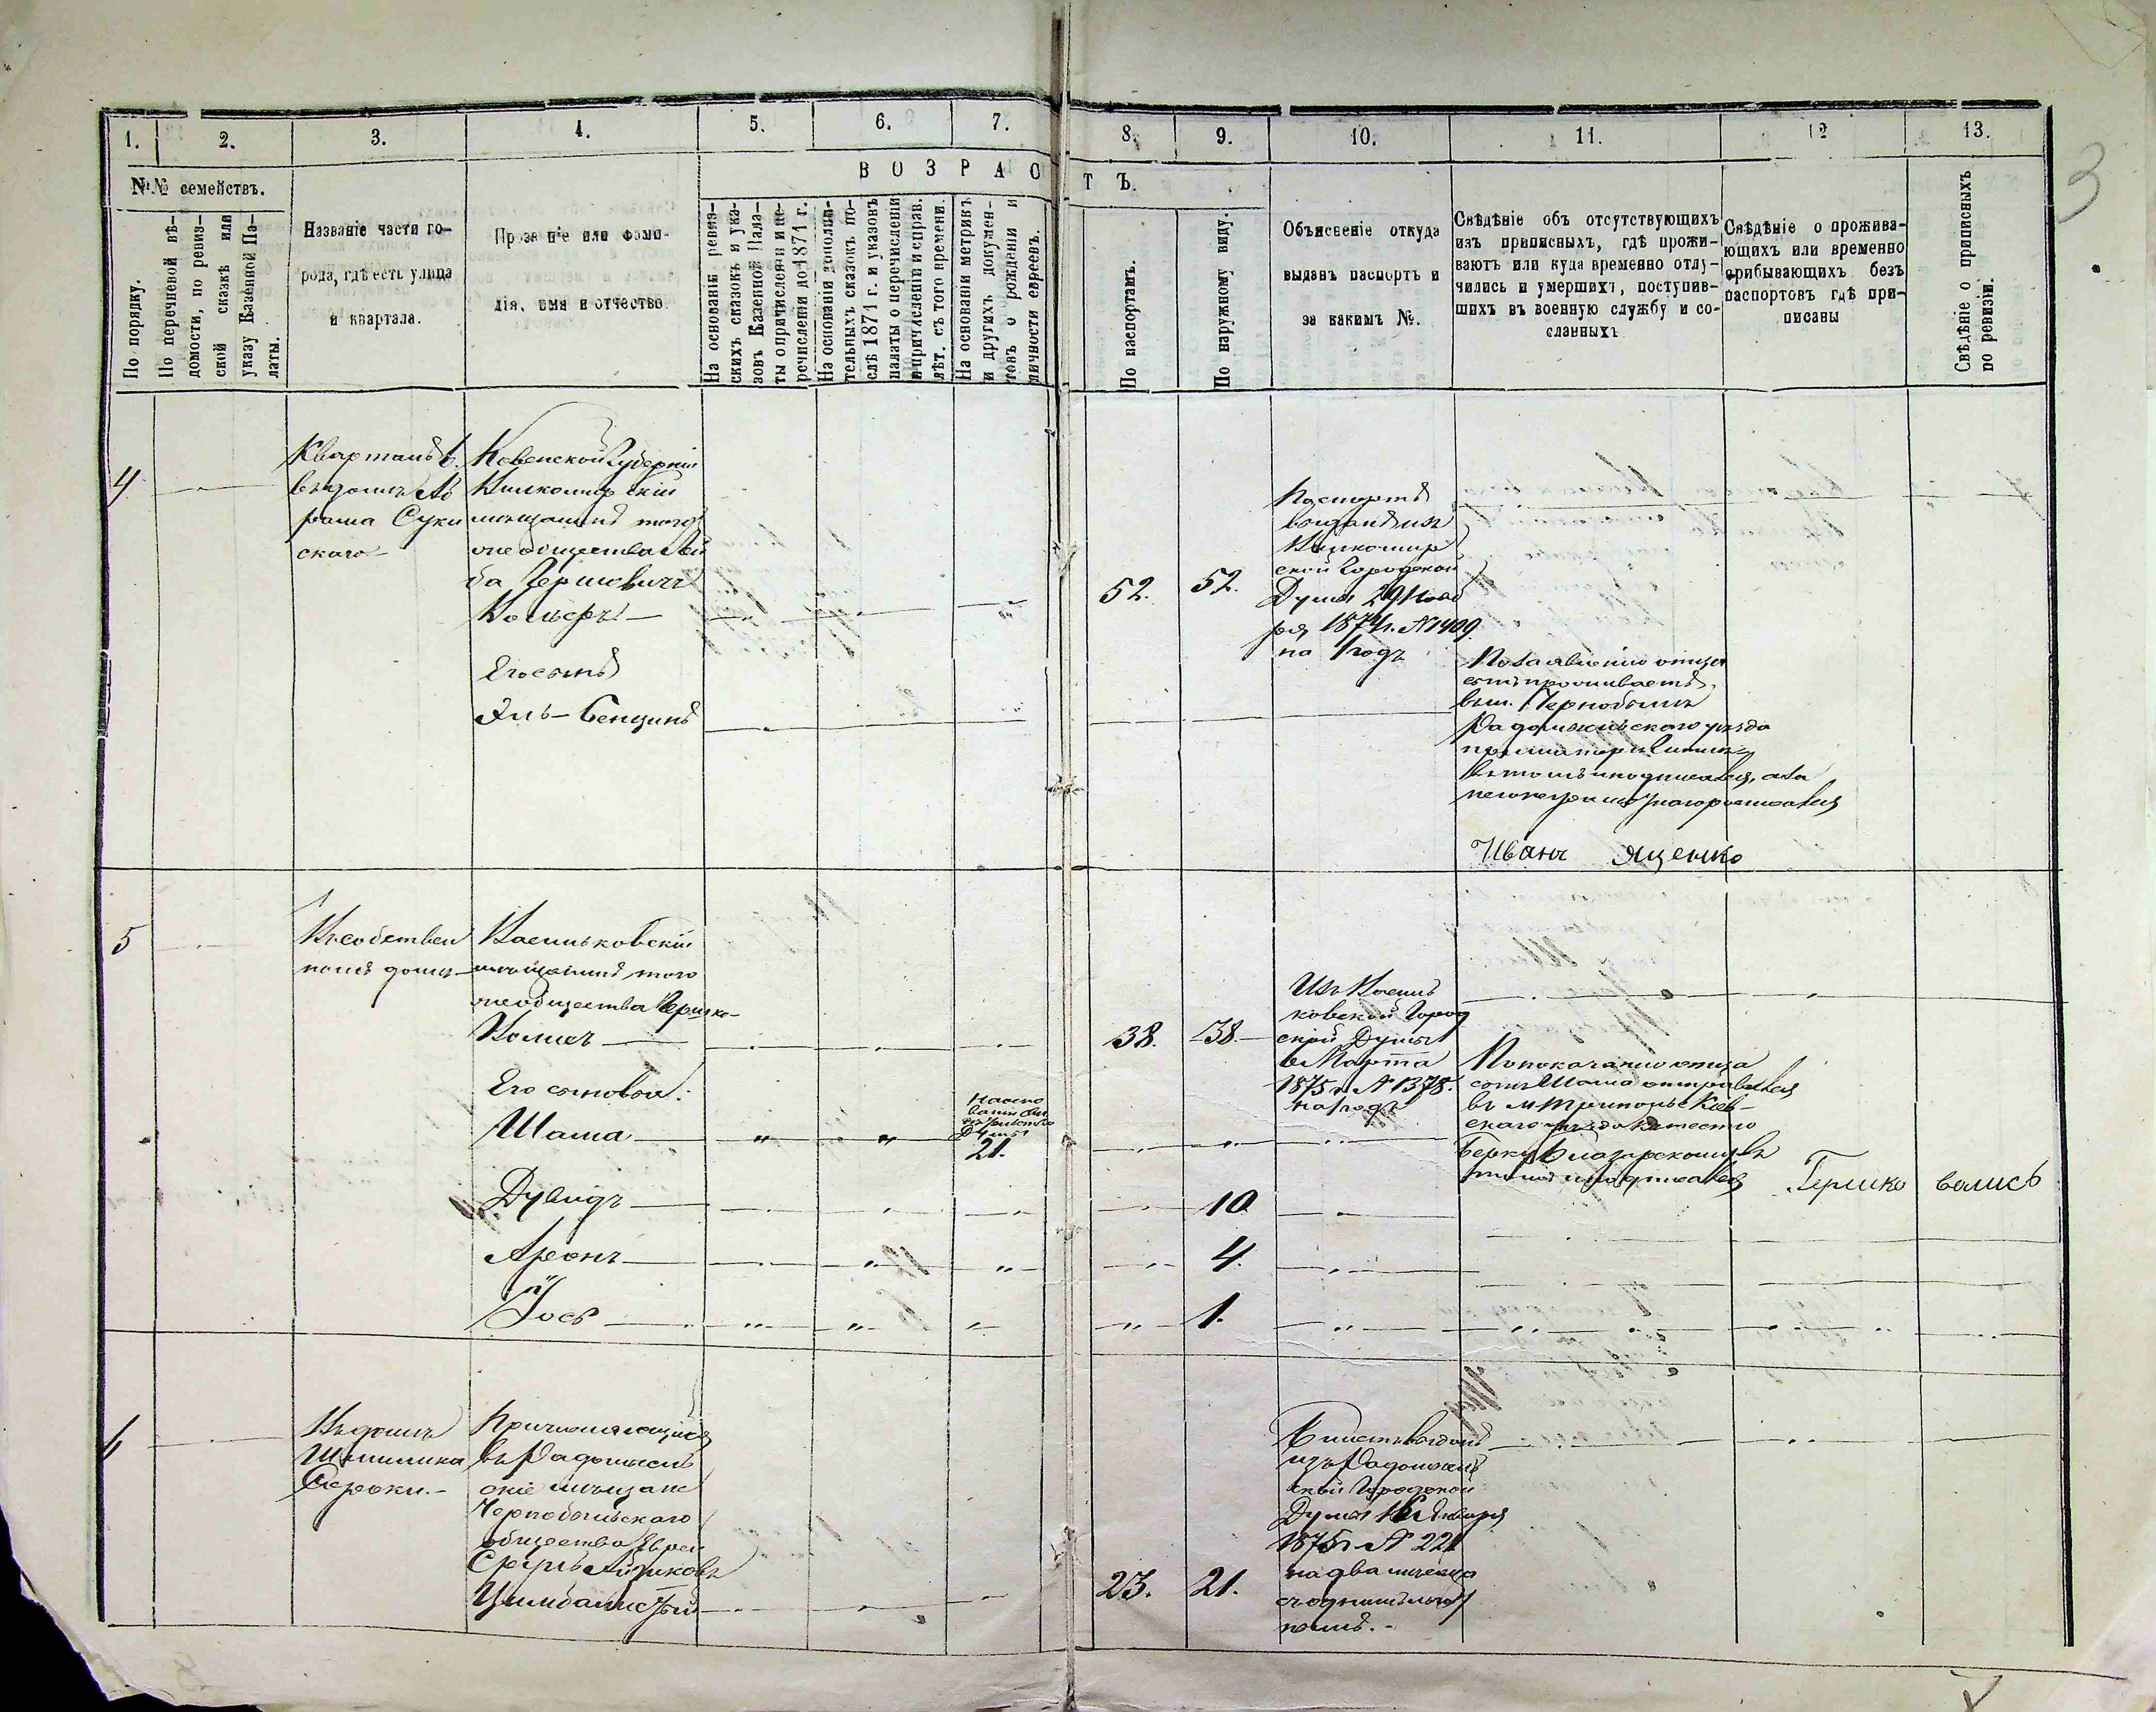 3
1. 2. 3. 4. 5. 6. 7. 8. 9. 10. 11. 12 13.
№№ семействъ.
В О З Р А С Т Ъ.
По порядку.
По перечневой вѣ-
домости, по ревиз-
ской сказкѣ или
указу Казенной Па-
латы.
Названіе части го-
рода, гдѣ есть улица
и квартала.
Прозваніе или фами-
лія, имя и отчество
На основаніи ревиз-
скихъ сказокъ и ука-
зовъ Казенной Пала-
ты о причисленіи и пе-
речисленіи до 1871 г.
На основаніи дополни-
тельныхъ сказокъ по-
слѣ 1871 г. и указовъ
палаты о перечисленіи
и причисленіи и справ.
лѣт. съ того времени.
На основаніи метрикъ
и другихъ докумен-
товъ о рожденіи и
личности евреевъ.
По паспортамъ.
По наружному виду.
Объясненіе откуда
выданъ паспортъ и
за какимъ №.
Свѣдѣніе объ отсутствующихъ
изъ приписныхъ, гдѣ прожи-
ваютъ или куда временно отлу-
чились и умершихъ, поступив-
шихъ въ военную службу и со-
сланныхъ
Свѣдѣніе о прожива-
ющихъ или временно
прибывающихъ безъ
паспортовъ гдѣ при-
писаны
Свѣдѣніе о приписныхъ
по ревизіи.
4
Кварталъ 1.
въ домѣ Аб
рама Суки
скаго
Ковенской Губерніи
Вилкомирскій
мѣщанинъ того
же общества Лей
ба Гершовичъ
Его сынъ
Эль-Бенціинъ
52. 52.
Паспортъ
выданъ изъ
Вилкомир
ской Городской
Думы 29 Нояб
ря 1874 г. № 1409
на 1 годъ
По заявленію отца
сынъ проживаетъ
въ м. Чернобылѣ
Радомысльскаго уѣзда
при матери
въ томъ и подписался, а за
него неграмотнаго росписался
Иванъ Ященко
5
Въ собствен
номъ домѣ
Васильковскій
мѣщанинъ того
же общества Гершко
Волисъ
Его сыновья:
Шама
Дувидъ
Аронъ
Іось
На осно
Думы
21.
38. 38.
10
4.
1.
Изъ Василь
ковской Город
ской Думы
6 Марта
1875 г. № 1378.
на 1 годъ
По показанію отца
сынъ Шама отправился
въ м Триполье Кіев-
скаго уѣзда
Гершко волисъ
6
Въ домѣ
Причисляющійся
въ Радомысль
скіе мѣщане
Чернобыльскаго
общества Еврей
Сруль Айзиковъ
Цимбалистый
23. 21.
Билетъ выданъ
изъ Радомысль
ской Городской
Думы 16 Января
1875 г. № 221
на два мѣсяца